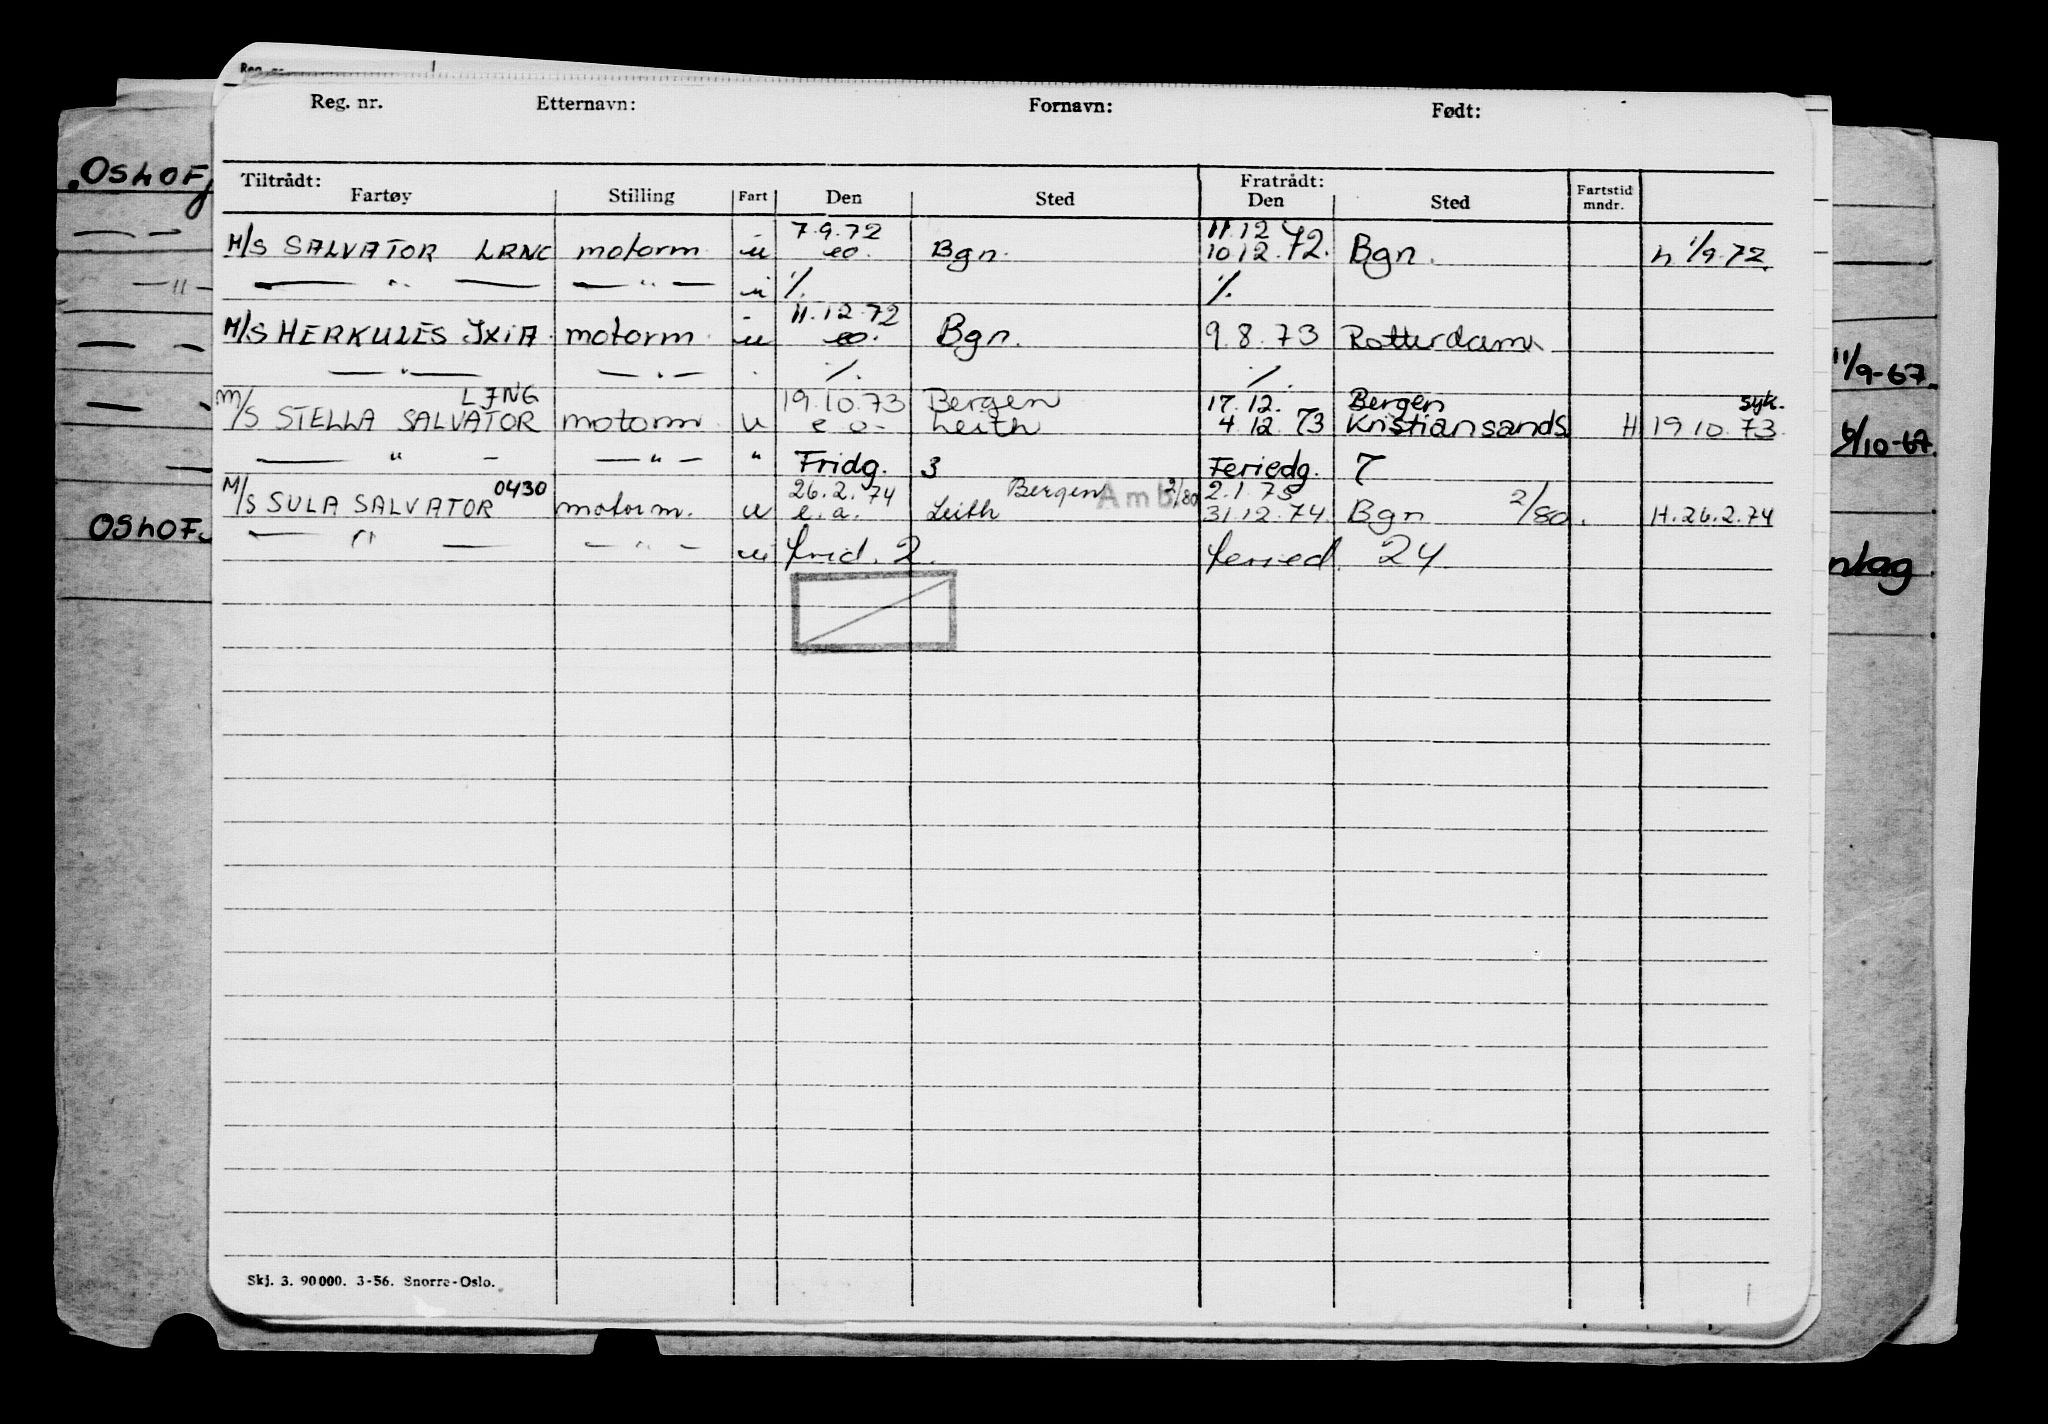 Reg. nr. Etternavn: Fornavn: Født:
Tiltrådt: Fratrådt:
Fartøy Stilling Fart Den Sted Den Sted Fartstid mndr.
7.9.72 11.12
M/S SALVATOR LRNC motorm. u eo. Bgn. 10.12.72. Bgn. h 1/9.72.
— " — — " — u % %
11.12.72
M/S HERKULES IXIA motorm. u eo. Bgn. 9.8.73 Rotterdam
— " — — " — . %. %.
LJNG 19.10.73 Bergen 17.12. Bergen syk.
M/S STELLA SALVATOR motorm u e o- Leith 4.12.73 Kristiansands H 19.10.73
— " — — " — " Fridg. 3 Feriedg. 7
0430 26.2.74 Bergen Amb 2/80 2.1.75
M/S SULA SALVATOR motorm. u e.a. Leith 31.12.74. Bgn 2/80. H.26.2.74
— " — — " — u frid. 2. feried. 24
Skj. 3. 90 000. 3-56. Snorre-Oslo.
OSHOF
— " —
OSHOF.
11/9-67.
6/10-67.